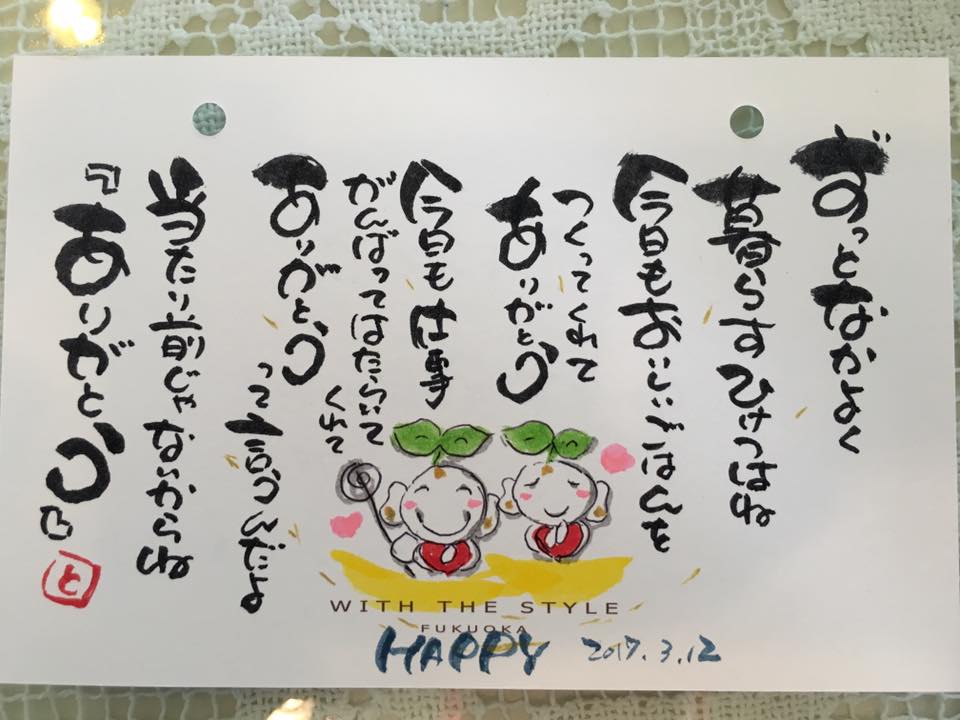 ずっとなかよく
暮らすひけつはね
今日もおいしいごはんを
つくってくれて
ありがとう
今日も仕事
がんばってはたらいて
くれて
ありがとう
って言うんだよ
当たり前じゃないからね
『ありがとう』
と
WITH THE STYLE
FUKUOKA
HAPPY 2017.3.12